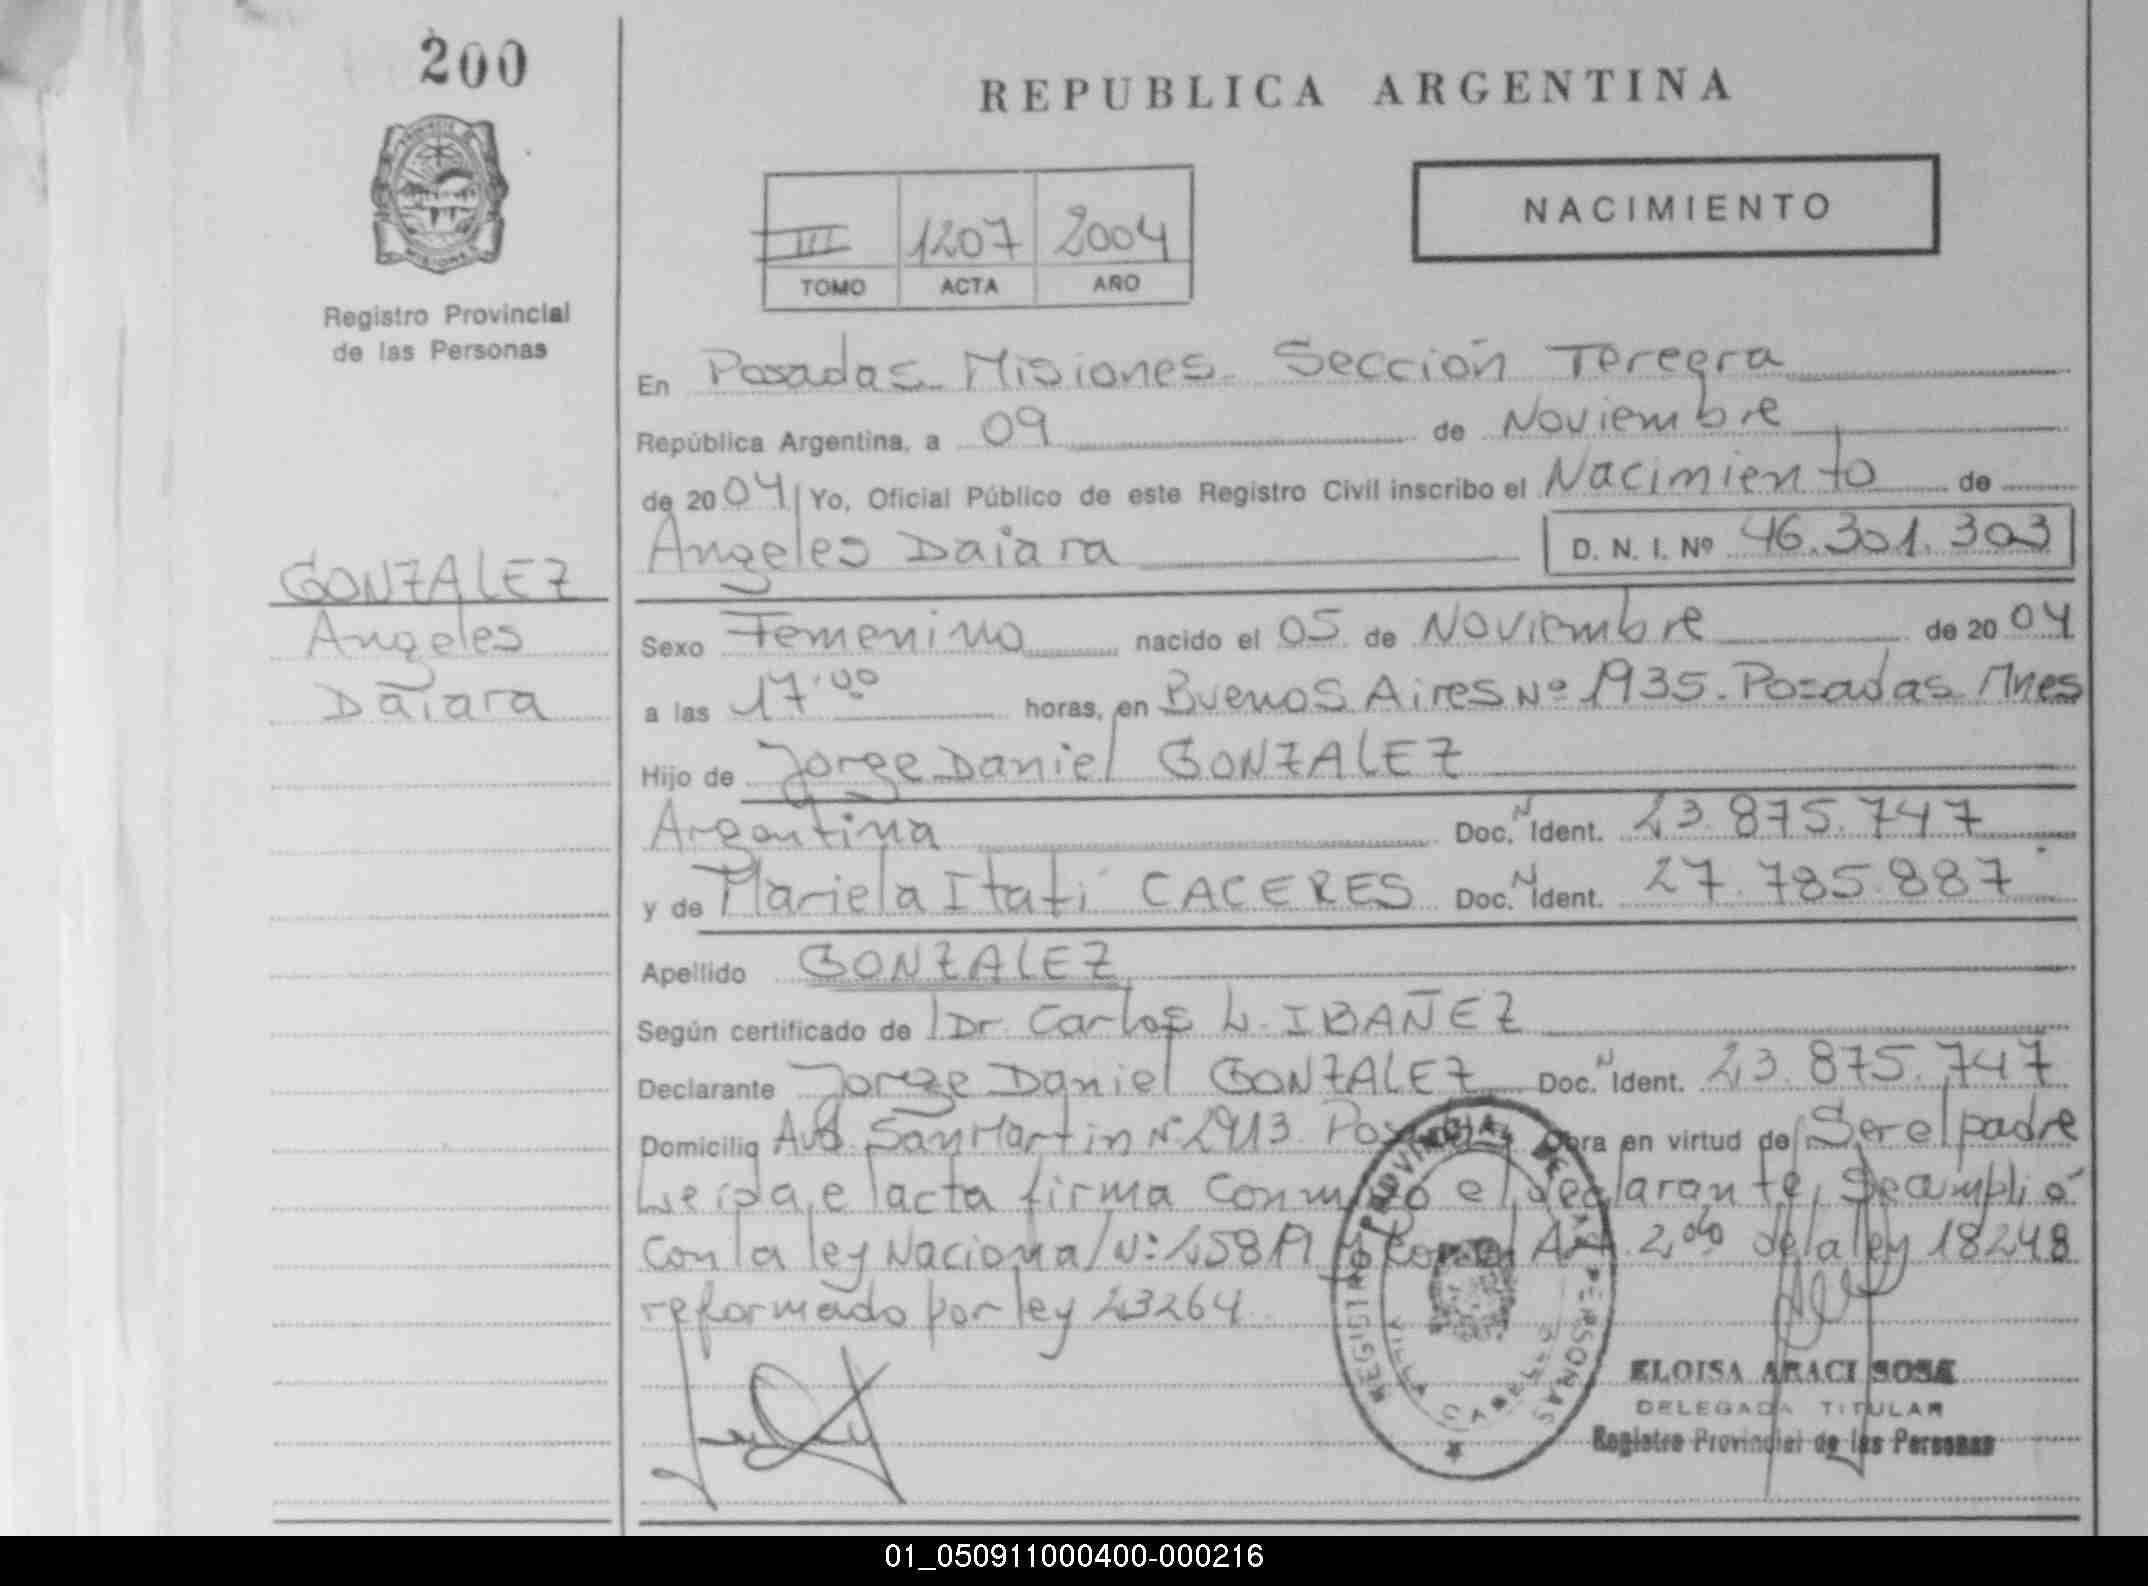 200
REPUBLICA ARGENTINA
NACIMIENTO
III 1207 2004
TOMO ACTA AÑO
Registro Provincial
de las Personas
En Posadas Misiones Sección Tercera
República Argentina, a 09 de Noviembre
de 2004 Yo, Oficial Público de este Registro Civil inscribo el Nacimiento de
Angeles Daiara D. N. I. Nº 46.301.303
GONZALEZ
Angeles
Daiara
Sexo Femenino nacido el 05 de Noviembre de 2004
a las 17.00 horas, en Buenos Aires Nº 1935. Posadas Mnes
Hijo de Jorge Daniel GONZALEZ
Argentina Doc. N Ident. 23.875.747
y de Mariela Itatí CACERES Doc. N Ident. 27.785.887
Apellido GONZALEZ
Según certificado de Dr. Carlos L. IBAÑEZ
Declarante Jorge Daniel GONZALEZ Doc. N Ident. 23.875.747
Domicilio Avd. San Martin Nº 2913. Obra en virtud de Ser el padre
Leida el acta firma Conmigo el declarante, Se amplió
Con la ley Nacional Nº: Art. 2do de la ley 18248
reformado por ley 23264
REGISTRO PROVINCIAL DE LAS PERSONAS
VILLA CABELLO
ELOISA ARACI SOSA
DELEGADA TITULAR
Registro Provincial de las Personas
01_050911000400-000216